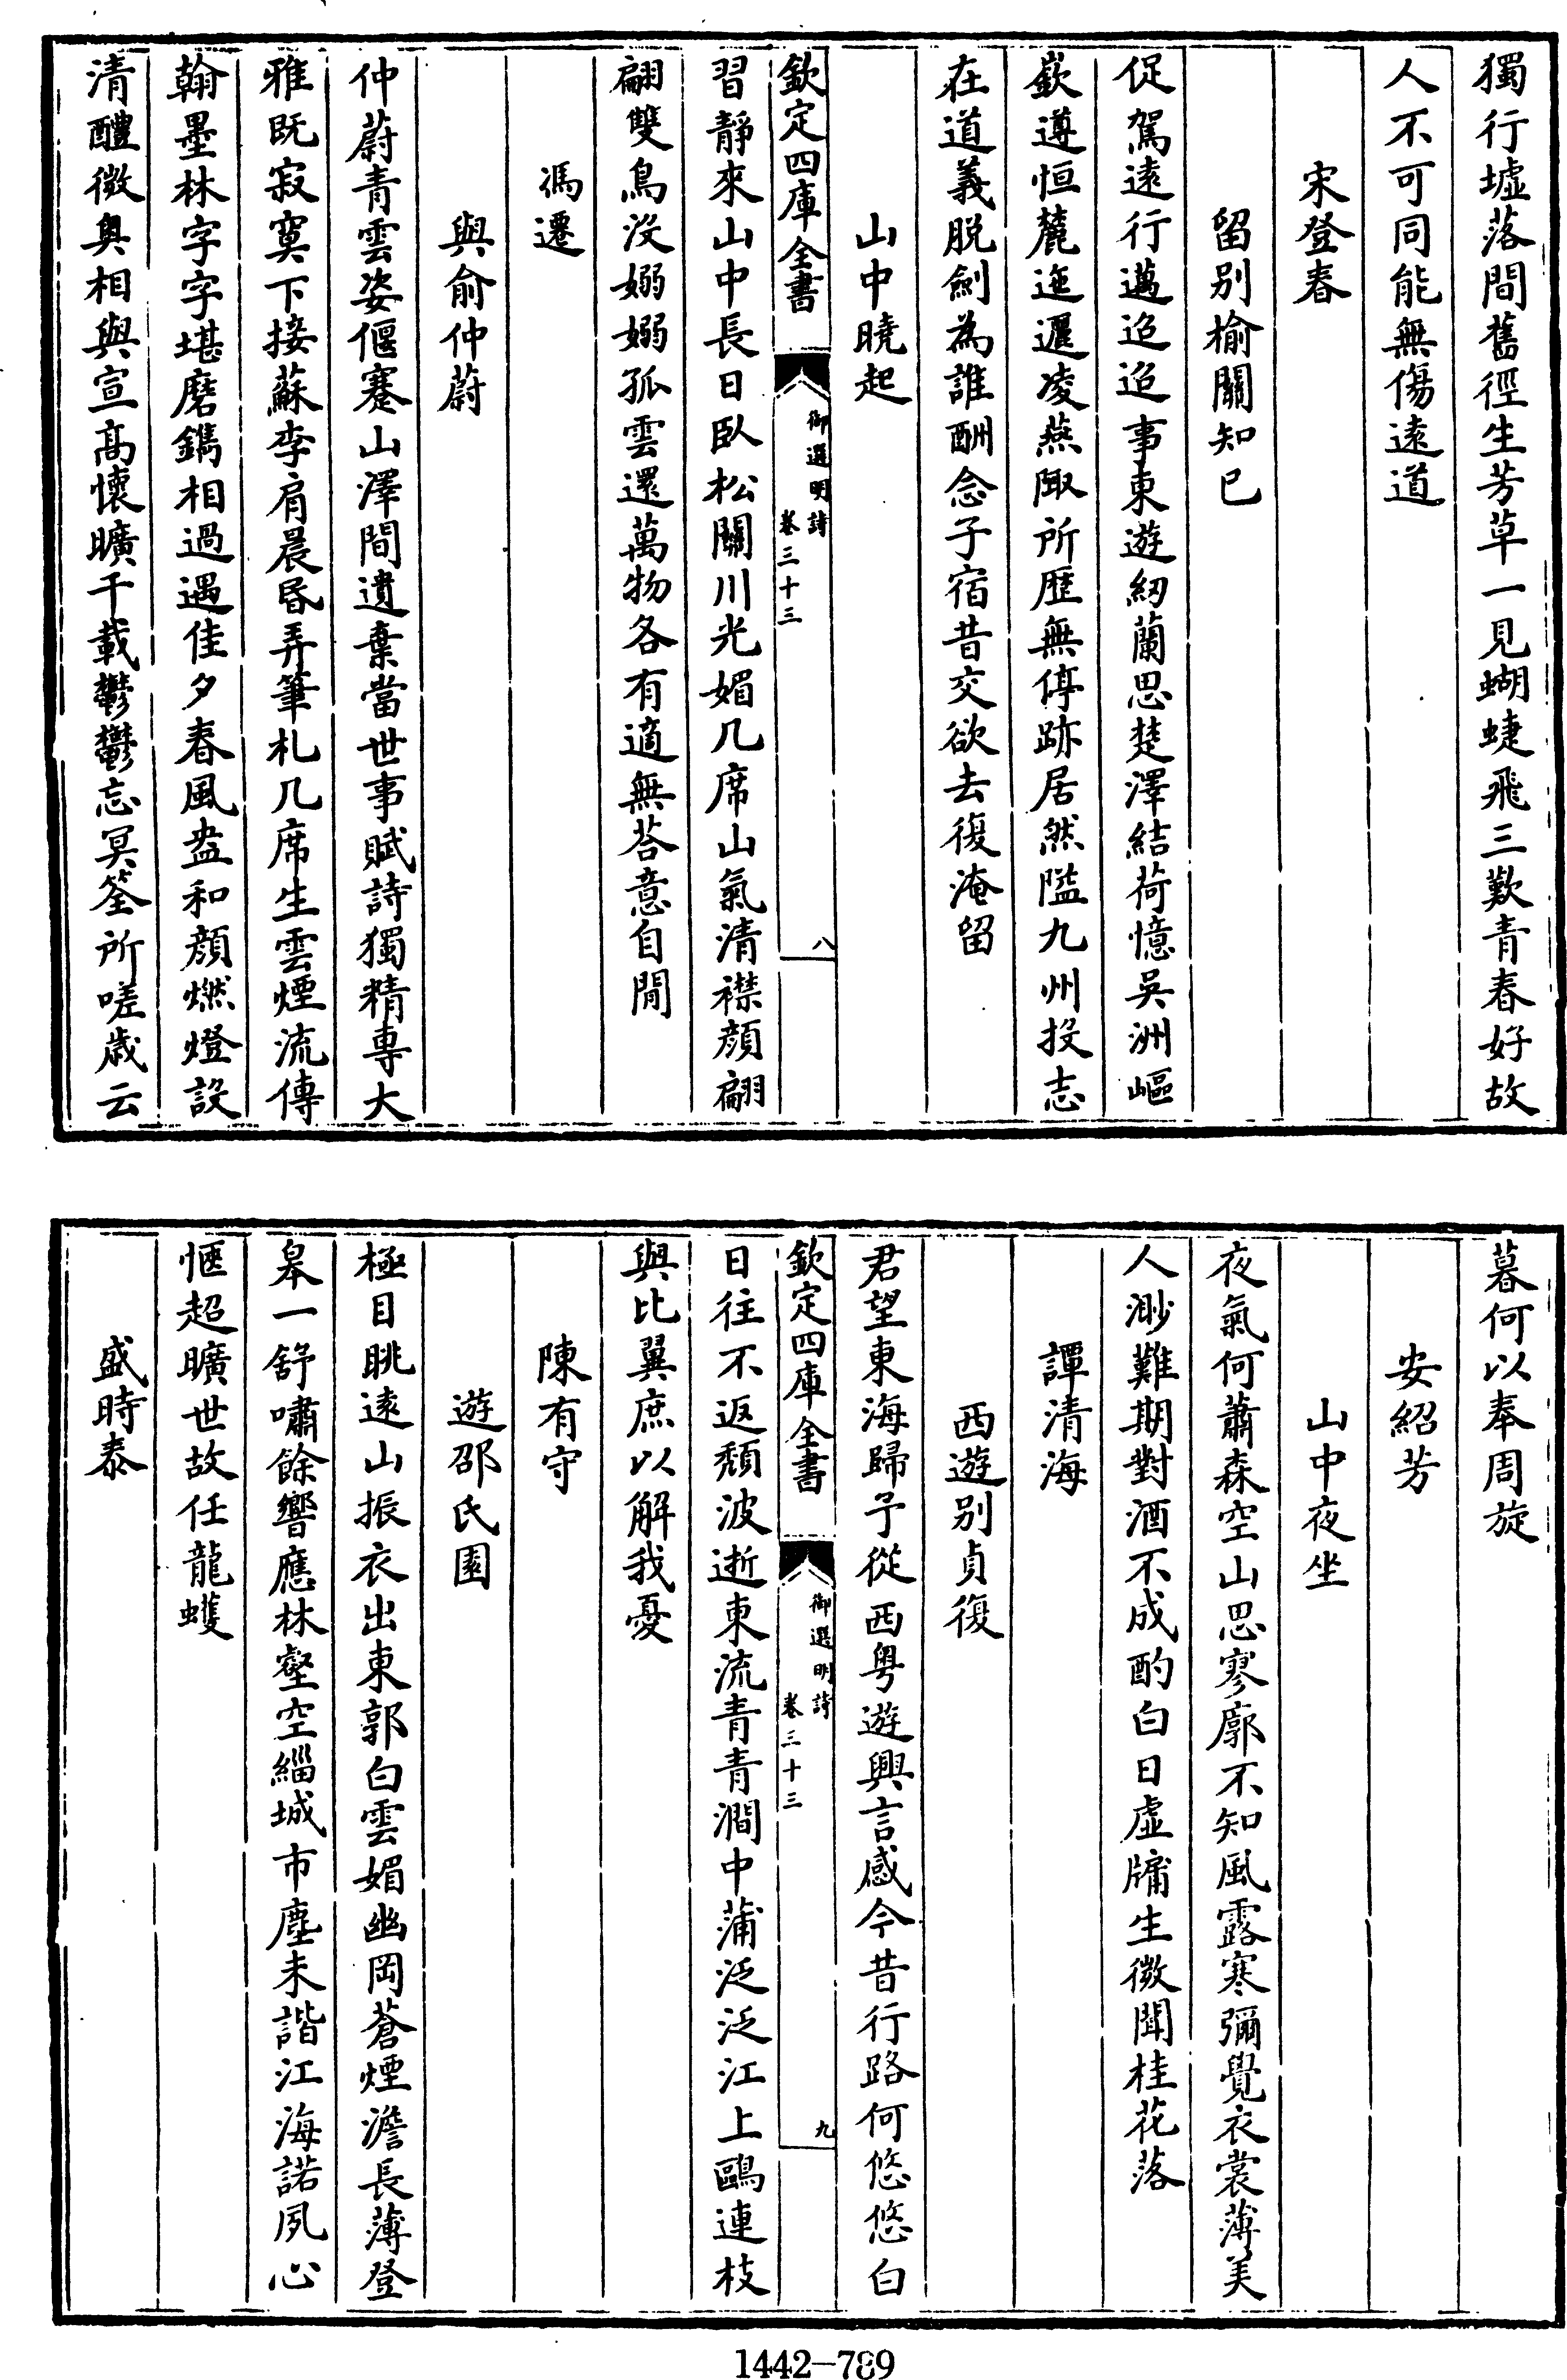 獨行墟落間舊徑生芳草一見蝴蜨飛三歎青春好故
人不可同能無傷遠道
宋登春
留别榆關知己
促駕遠行邁迢迢事東遊紉蘭思楚澤結荷憶吳洲嶇
嶔遵恒麓迤邐凌燕陬所歴無停跡居然隘九州投志
在道義脱劍為誰酬念子宿昔交欲去復淹留
山中曉起
欽定四庫全書
御選明詩
卷三十三
八
習靜來山中長日臥松關川光媚几席山氣清襟顔翩
翩雙鳥没嫋嫋孤雲還萬物各有適無荅意自閒
馮遷
與俞仲蔚
仲蔚青雲姿偃蹇山澤間遺棄當世事賦詩獨精專大
雅旣寂寞下接蘇李肩晨昏弄筆札几席生雲煙流傳
翰墨林字字堪磨鐫相過遇佳夕春風盎和顔燃燈設
清醴微奥相與宣高懷曠千載鬱鬱忘冥筌所嗟歳云
暮何以奉周旋
安紹芳
山中夜坐
夜氣何蕭森空山思寥廓不知風露寒彌覺衣裳薄美
人渺難期對酒不成酌白日虚牖生微聞桂花落
譚清海
西遊别貞復
君望東海歸予從西粤遊興言感今昔行路何悠悠白
欽定四庫全書
御選明詩
卷三十三
九
日往不返頽波逝東流青青澗中蒲泛泛江上鷗連枝
與比翼庶以解我憂
陳有守
遊邵氏園
極目眺遠山振衣出東郭白雲媚幽岡蒼煙澹長薄登
皋一舒嘯餘響應林壑空緇城市塵未諧江海諾夙心
愜超曠世故任龍蠖
盛時泰
1442—789